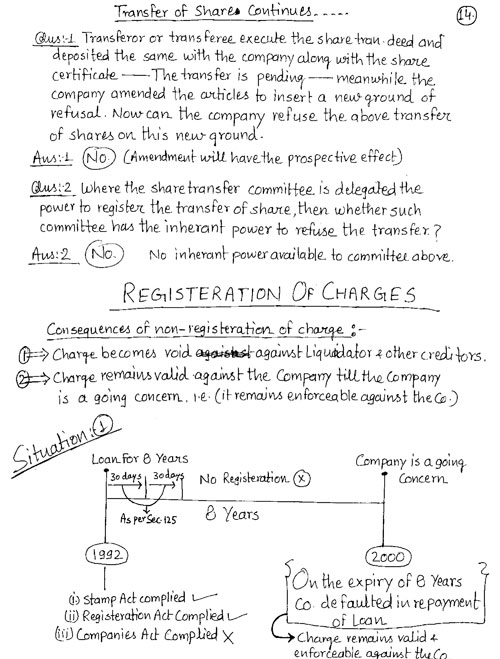 Transfer of Shares Continues.....
14
Qus:-1 Transferor or transferee execute the share tran. deed and
deposited the same with the company along with the share
certificate — The transfer is pending — meanwhile the
company amended the articles to insert a new ground of
refusal. Now can the company refuse the above transfer
of shares on this new ground.
Ans:-1 No. (Amendment will have the prospective effect)
Qus:-2 Where the share transfer committee is delegated the
power to register the transfer of share, then whether such
committee has the inharant power to refuse the transfer?
Ans:2 No. No inherant power available to committee above.
REGISTERATION OF CHARGES
Consequences of non-registeration of charge :-
1 ⇒ Charge becomes void against Liquidator & other creditors.
2 ⇒ Charge remains valid against the Company till the Company
is a going concern. i.e. (it remains enforceable against the Co.)
Situation:-1
Loan For 8 Years
Company is a going
Concern
30 days 30 days No Registeration X
As per Sec. 125
8 Years
1992
2000
(i) Stamp Act complied ✓
(ii) Registeration Act Complied ✓
(iii) Companies Act Complied X
On the expiry of 8 Years
Co. defaulted in repayment
of Loan
→ Charge remains valid &
enforceable against the Co.